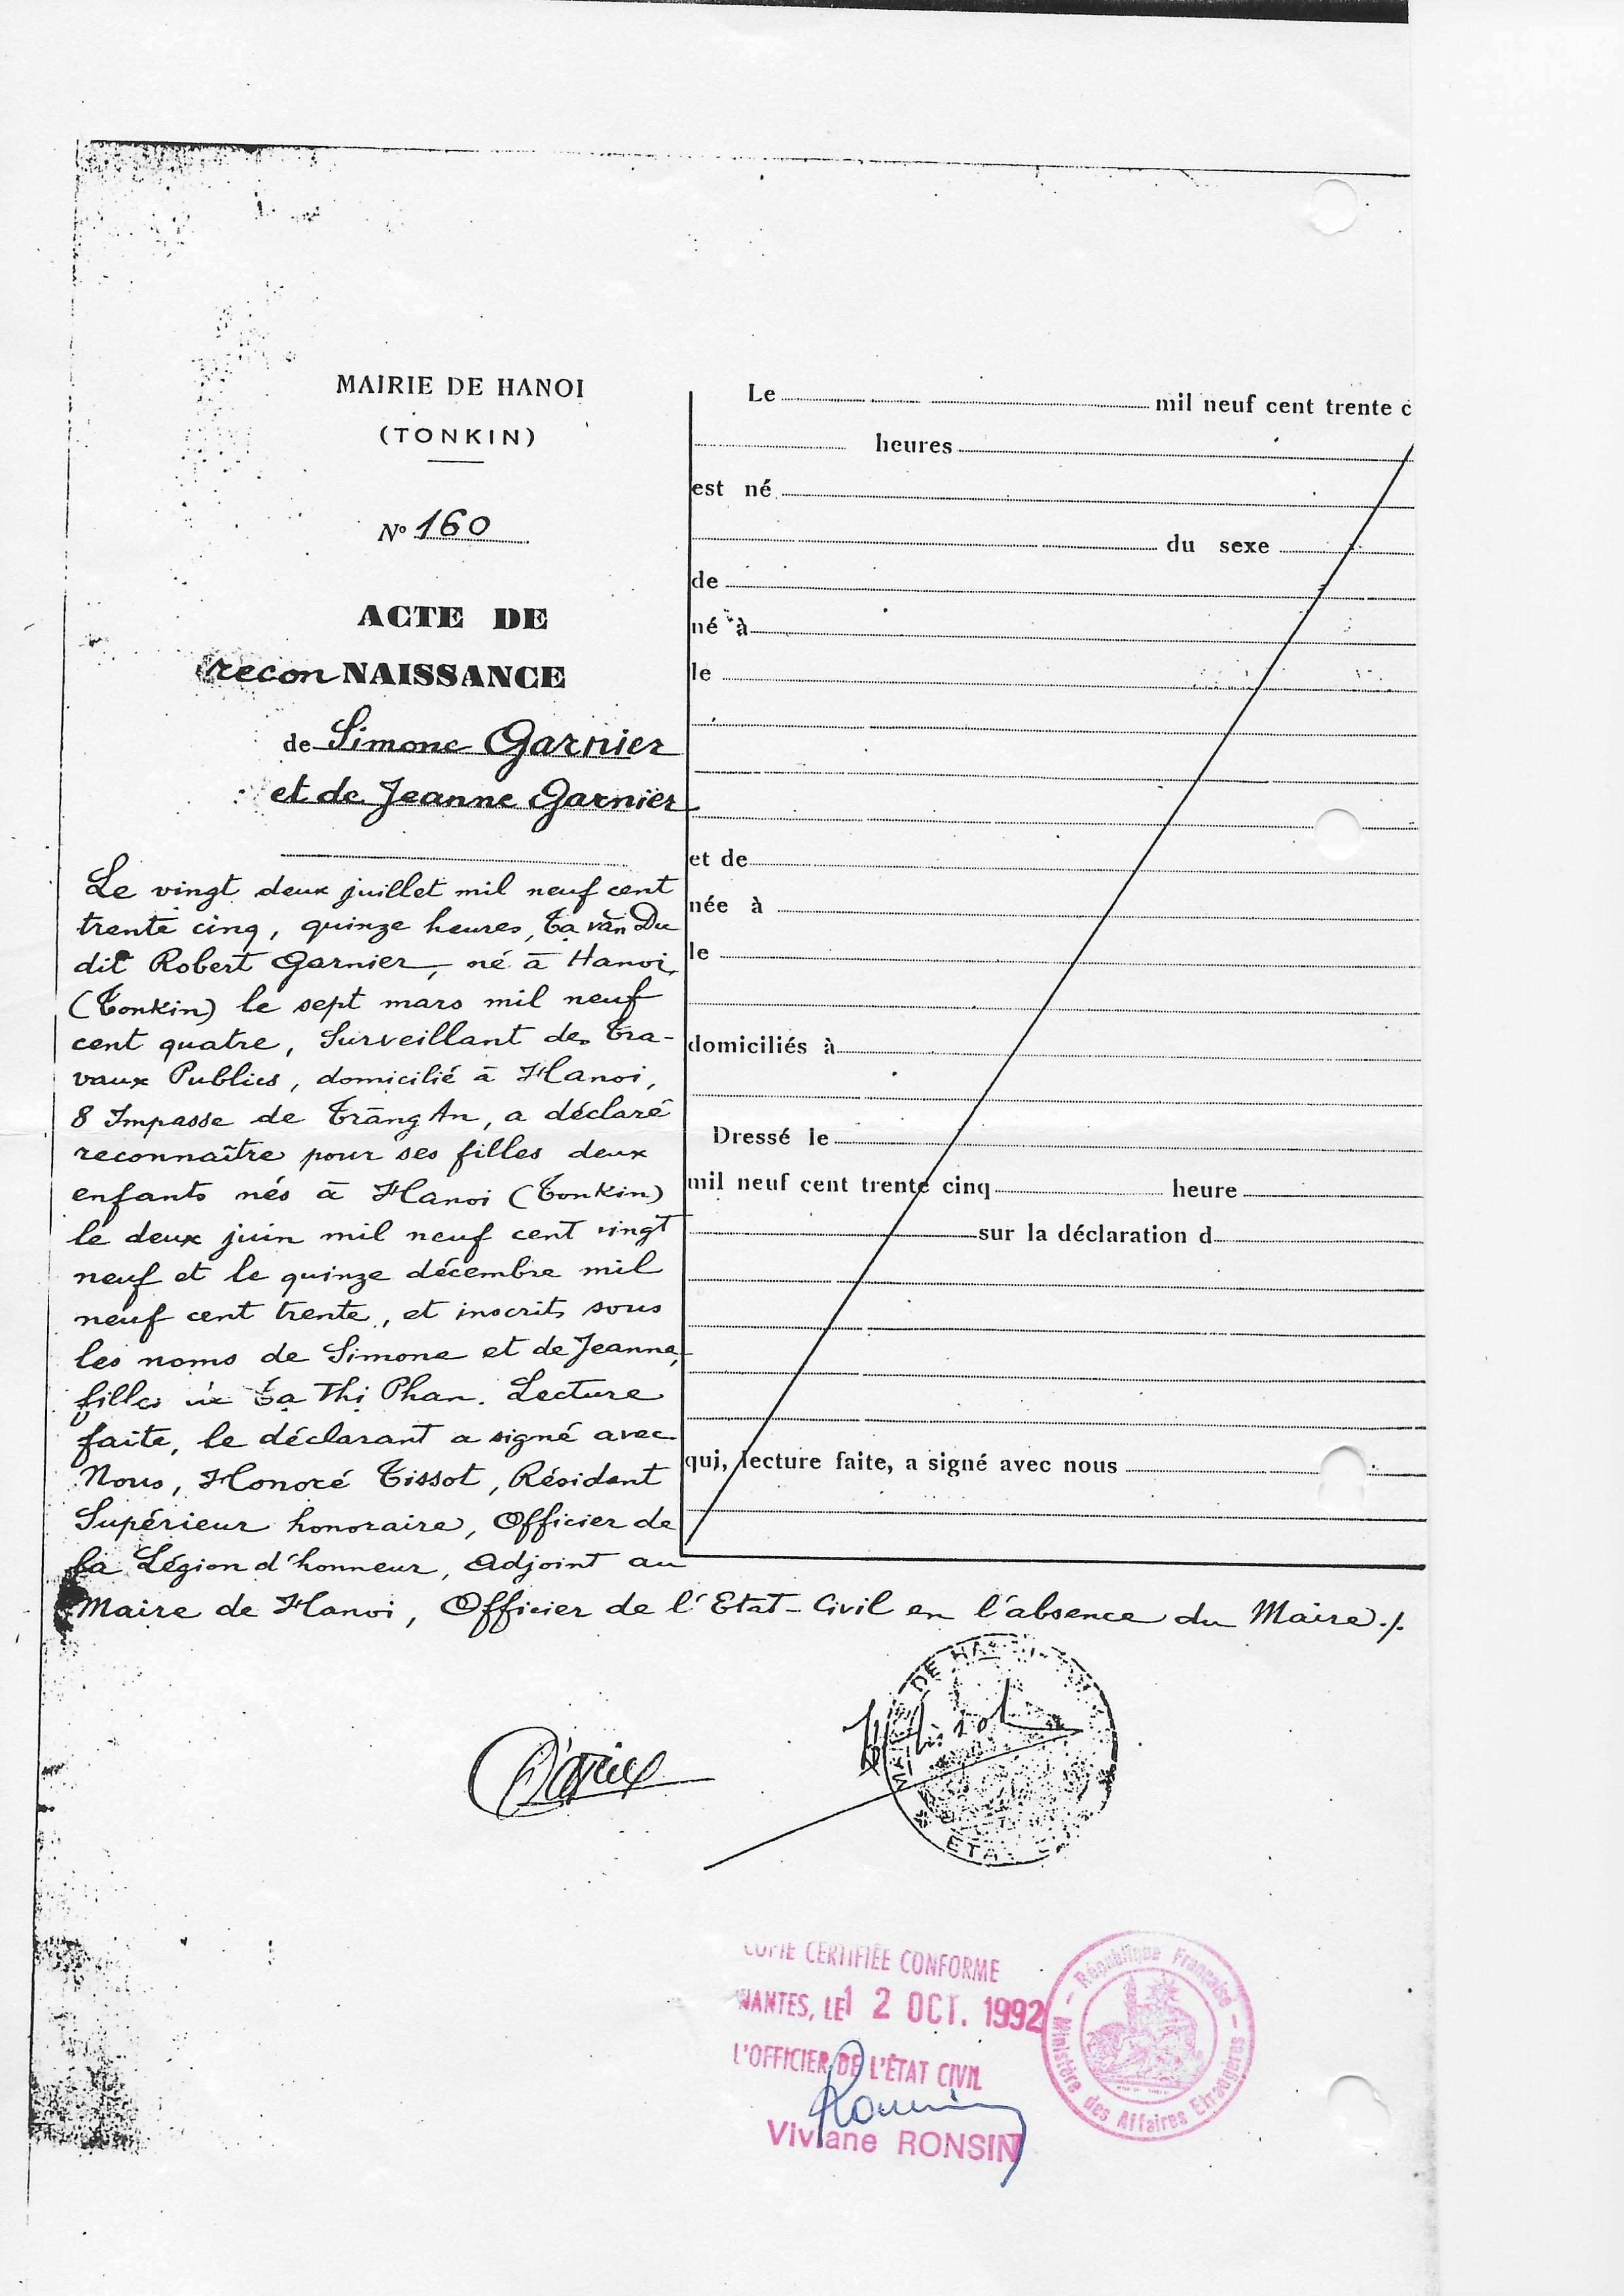 MAIRIE DE HANOI
(TONKIN)
Nº 160
ACTE DE
reconNAISSANCE
de Simone Garnier
et de Jeanne Garnier
Le vingt deux juillet mil neuf cent
trente cinq, quinze heures, Ta văn Du
dit Robert Garnier, né à Hanoi,
(Tonkin) le sept mars mil neuf
cent quatre, Surveillant des Tra-
vaux Publics, domicilié à Hanoi,
8 Impasse de Trang An, a déclaré
reconnaître pour ses filles deux
enfants nés à Hanoi (Tonkin)
le deux juin mil neuf cent vingt
neuf et le quinze décembre mil
neuf cent trente, et inscrits sous
les noms de Simone et de Jeanne,
filles de Tạ Thị Phan. Lecture
faite, le déclarant a signé avec
Nous, Honoré Tissot, Résident
Supérieur honoraire, Officier de
la Légion d'honneur, Adjoint au
Maire de Hanoi, Officier de l'Etat-Civil en l'absence du Maire./.
Le mil neuf cent trente c
heures
est né
du sexe
de
né à
le
et de
née à
le
domiciliés à
Dressé le
mil neuf cent trente cinq heure
sur la déclaration d
qui, lecture faite, a signé avec nous
DE HA
ETA
COPIE CERTIFIÉE CONFORME
NANTES, LE 12 OCT. 1992
L'OFFICIER DE L'ÉTAT CIVIL
Viviane RONSIN
République Française
Ministère des Affaires Etrangères